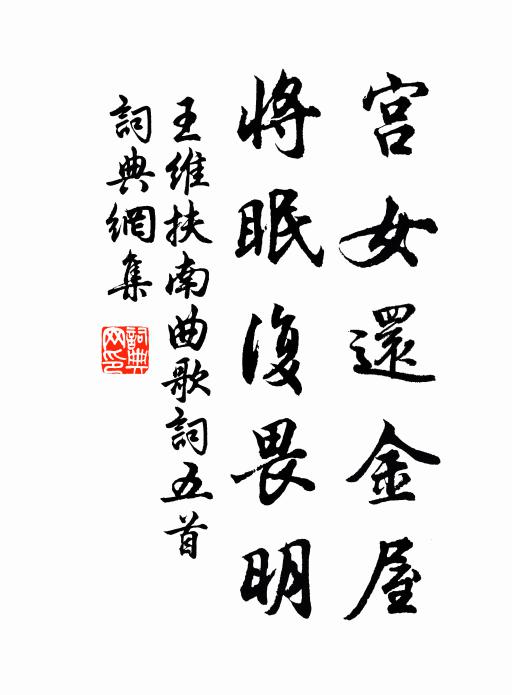 宫女還金屋
將眠復畏明
王維扶南曲歌詞五首
詞典網集
詞典網印